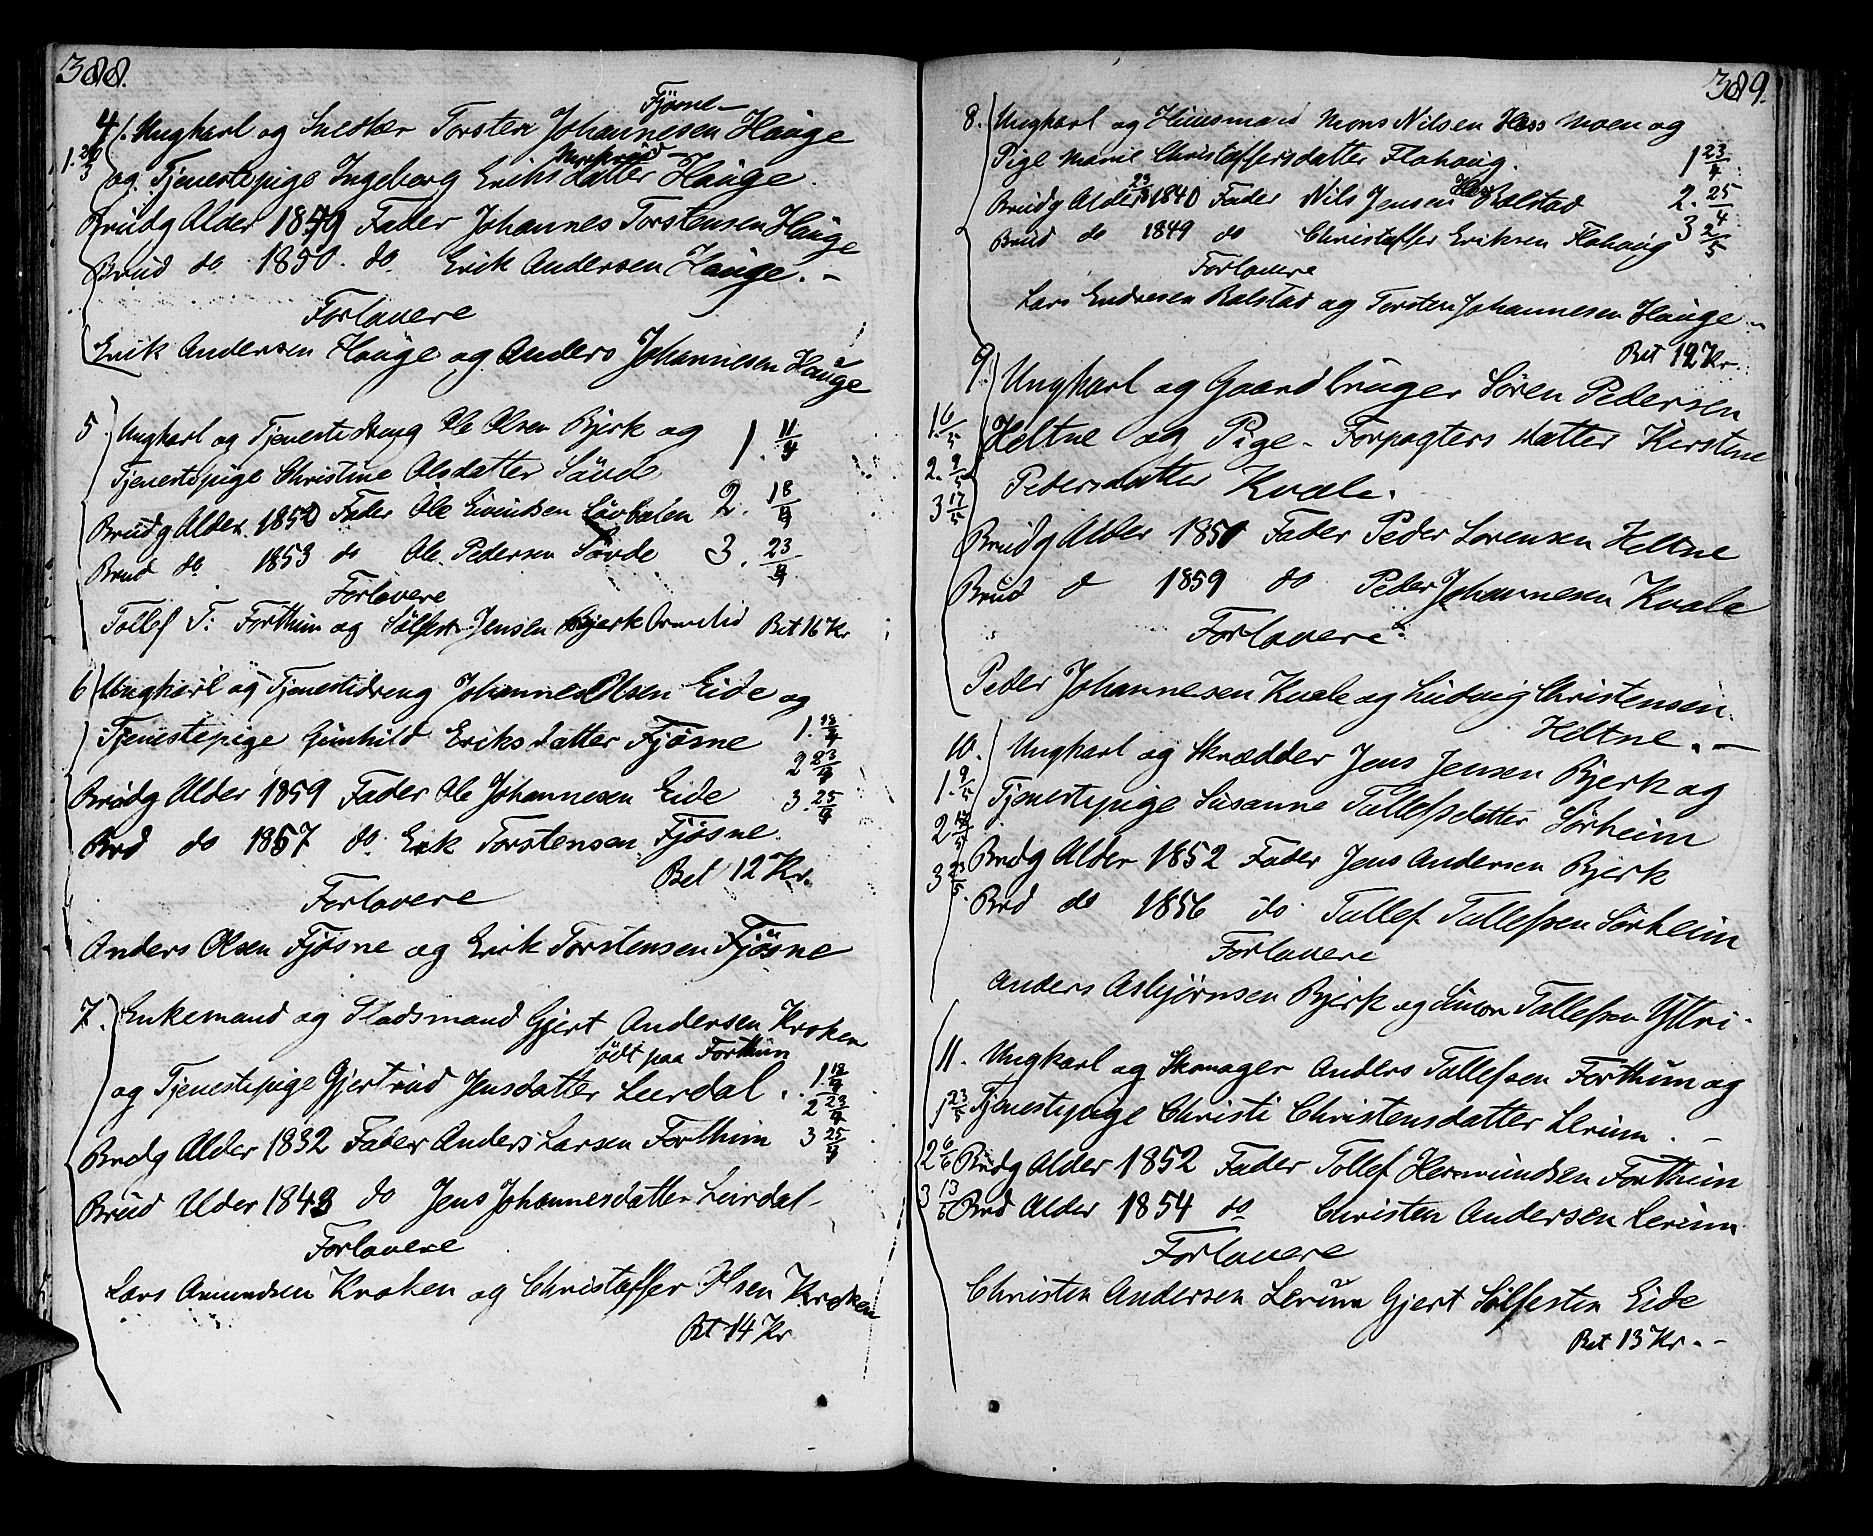 388.
Fjösne
4/. Ungkarl og Snedker Torsten Johannesen Hauge
1. 20/3 og Tjenestepige Ingeborg Eriksdatter Hauge.
Brudg Alder 1849 Fader Johannes Torstensen Hauge
Brud do 1850. do. Erik Andersen Hauge. -
Forlovere
Erik Andersen Hauge og Anders Johannesen Hauge
5 Ungkarl og Tjenestedreng Ole Olsen Bjerk og 1. 11/4
Tjenestepige Christine Olsdatter Sövde
Brudg Alder. 1850 Fader Ole Eivindsen 2. 18/4
Brud do 1853 do Ole Pedersen Sövde 3. 23/4
Forlovere
Tollef T: Forthun og Sølfest Jensen Bjerk Ormelid Bet 16 Kr
6 Ungkarl og Tjenestedreng Johannes Olsen Eide og
Tjenestepige Gunhild Eriksdatter Fjøsne 1. 18/4
2 23/4
Brudg Alder 1859 Fader Ole Johannesen Eide 3. 25/4
Brd do 1857 do. Erik Torstensen Fjøsne
Bet 12 Kr.
Forlovere
Anders Olsen Fjøsne og Erik Torstensen Fjøsne
7. Enkemand og Pladsmand Gjert Andersen Kroken
födt paa Forthun
og Tjenestepige Gjertrud Jensdatter Leirdal. 1. 18/4
2 23/4
Brdg Alder 1832 Fader Anders Larsen Forthun 3 25/4
Brud Alder 1843 do Jens Johannesdatter Leirdal -
Forlovere
Lars Amundsen Kroken og Christoffer Olsen Kroken
Bet 14 Kr
389.
8. Ungkarl og Huusmand Mons Nilsen Moen og
Pige Marie Christoffersdatter Flahaug. 1 23/4
Brudg Alder 1840 Fader Nils Jensen Balstad 2. 25/4
Brud do 1849 do Christoffer Eriksen Flahaug 3 2/5
Forlovere
Lars Endresen Balstad og Torsten Johannesen Hauge -
Bet 12 Kr.
9. Ungkarl og Gaardbruger Sören Pedersen
1. 6/5 Heltne og Pige - Forpagters datter Kirstine
2. 9/5 Pedersdatter Kvale.
3 17/5
Brudg Alder 1851 Fader Peder Sorensen Heltne
Brud d 1859 do Peder Johannesen Kvale
Forlovere
Peder Johannesen Kvale og Ludvig Christensen
Heltne. -
10. Ungkarl og Skrædder Jens Jensen Bjerk og
1. 9/5 Tjenestepige Susanne Tollefsdatter Sörheim
2 18/5 Brdg Alder 1852 Fader Jens Andersen Bjerk
3 23/5 Brd do 1856 do Tollef Tollefsen Sörheim
Forlovere
Anders Asbjørnsen Bjerk og Simon Tollefsen Yttri -
11. Ungkarl og Skomager Anders Tollefsen Forthun og
1 23/5 Tjenestepige Christi Christensdatter Lerum. -
2 6/6 Brdg Alder 1852 Fader Tollef Hermundsen Forthun
3 13/6 Brd Alder 1854 do Christen Andersen Lerum
Forlovere
Christen Andersen Lerum Gjert Sølfesten Eide
Bet 13 Kr. -